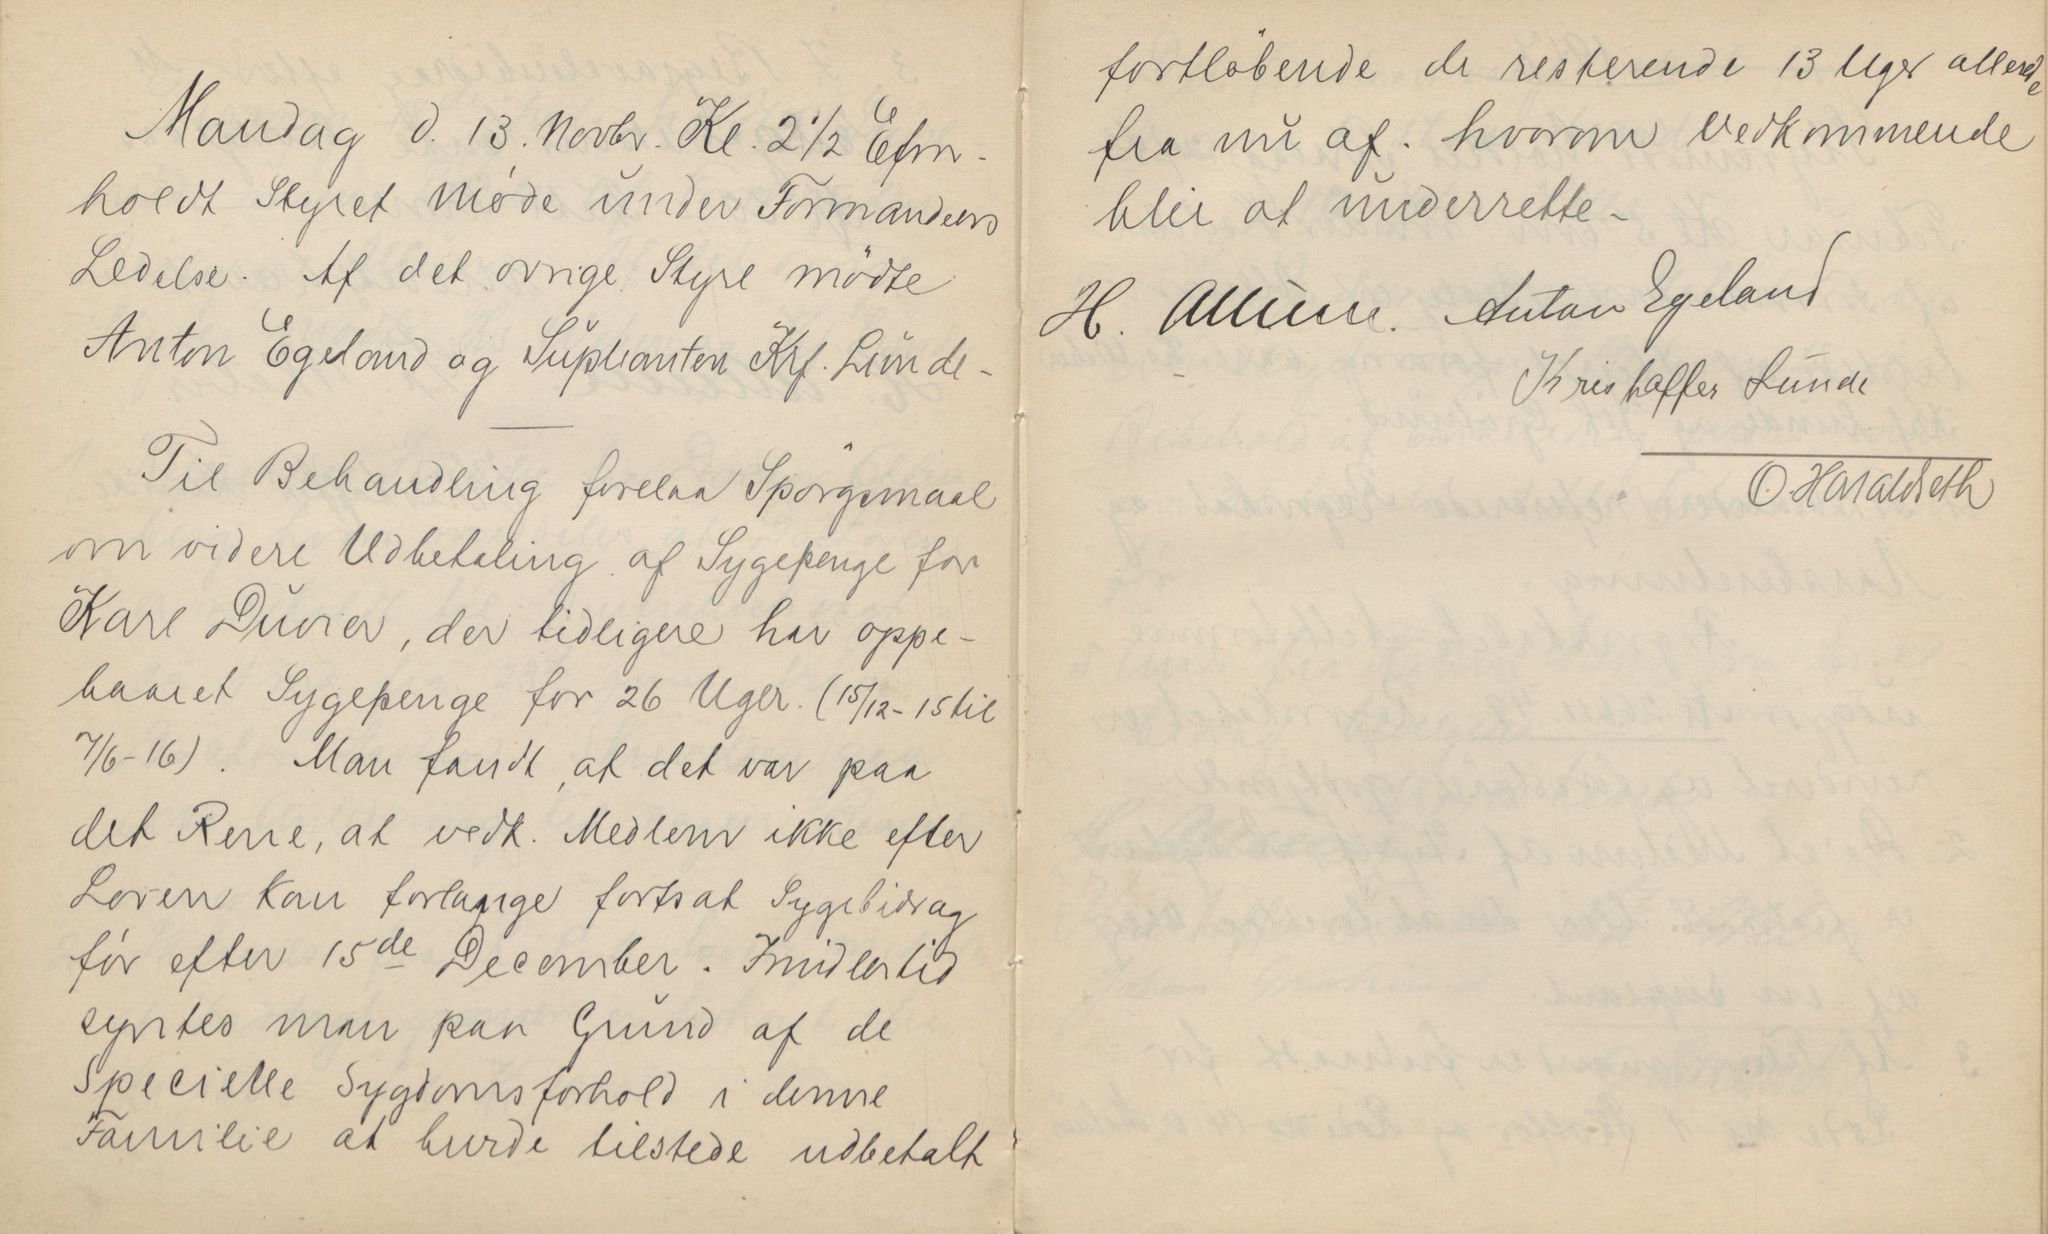 Mandag d. 13. Novbr. Kl. 2 1/2 Efm.
holdt Styret Møde under Formandens
Ledelse. Af det øvrige Styre mødte
Anton Egeland og Suplianten Krf. Lunde-
Til Behandling forelaa Spørgsmaal
om videre Udbetaling af Sygepenge for
Karl Duvier, der tidligere har oppe-
baaret Sygepenge for 26 Uger. (15/12-15 til
7/6-16). Man fandt, at det var paa
det Rene, at vedk. Medlem ikke efter
Loven kan forlange fortsat Sygebidrag
før efter 15de December. Imidlertid
syntes man paa Grund af de
Specielle Sygdomsforhold i denne
Familie at burde tilstede udbetalt
fortløbende de resterende 13 Uger allerede
fra nu af. hvorom Vedkommende
blir at underrette-
H. Anton Egeland
Kristoffer Lunde
O Haraldseth